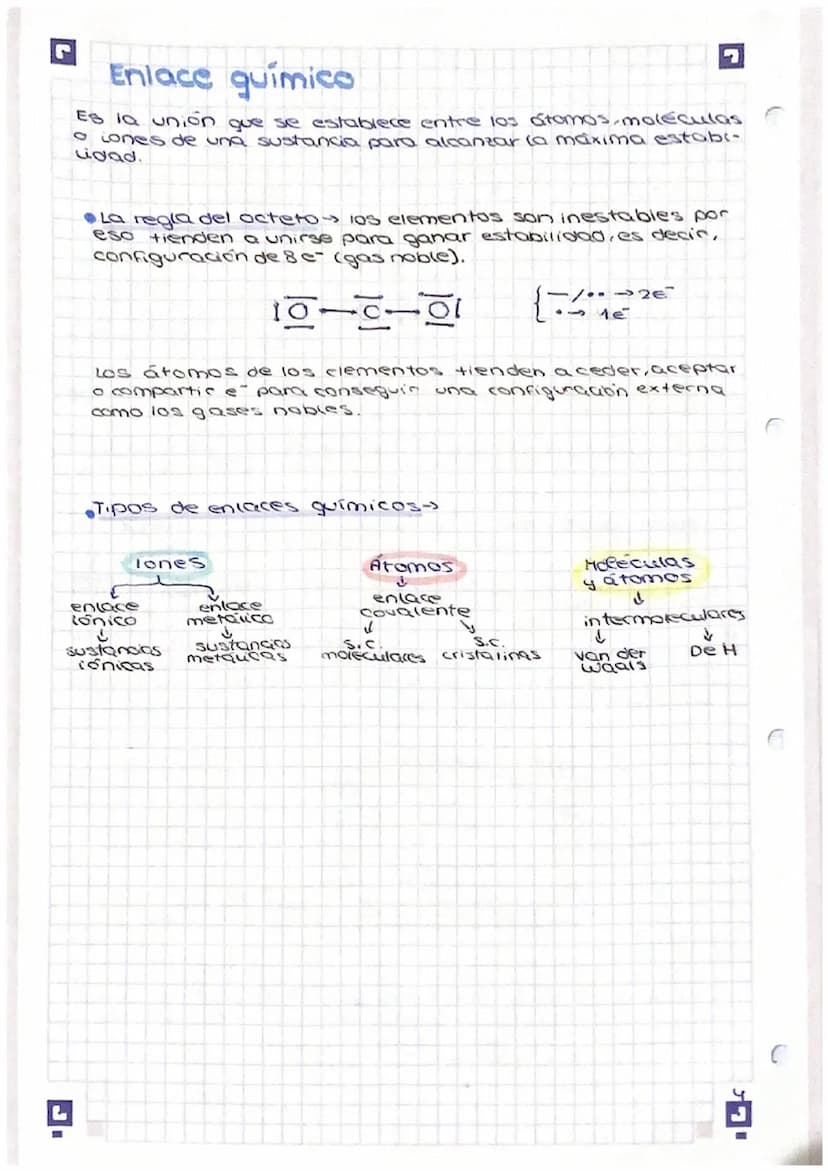 Enlace químico
Es la unión que se establece entre los átomos, moléculas
o iones de una sustancia para alcanzar la máxima estabi-
lidad.
• La regla del octeto → los elementos son inestables por
eso tienden a unirse para ganar estabilidad, es decir,
configuración de 8 e⁻ (gas noble).
|O — C — O|
{ — / •• → 2e⁻
• → 1e⁻
Los átomos de los elementos tienden a ceder, aceptar
o compartir e⁻ para conseguir una configuración externa
como los gases nobles.
• Tipos de enlaces químicos →
Iones
enlace iónico
↓
sustancias iónicas
enlace metálico
↓
sustancias metálicas
Átomos
↓
enlace covalente
s.c. moleculares
s.c. cristalinas
Moléculas y átomos
↓
intermoleculares
van der waals
De H
4